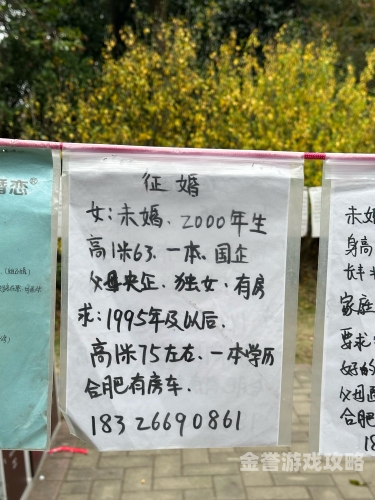 征婚
女:未婚、2000年生
高1米63、一本、国企
父母央企、独女、有房
求:1995年及以后、
高1米75左右、一本学历
合肥有房车.
18326690861
婚恋
未婚
身高
家庭
要求
好的
父母
合肥
18
金誉游戏攻略